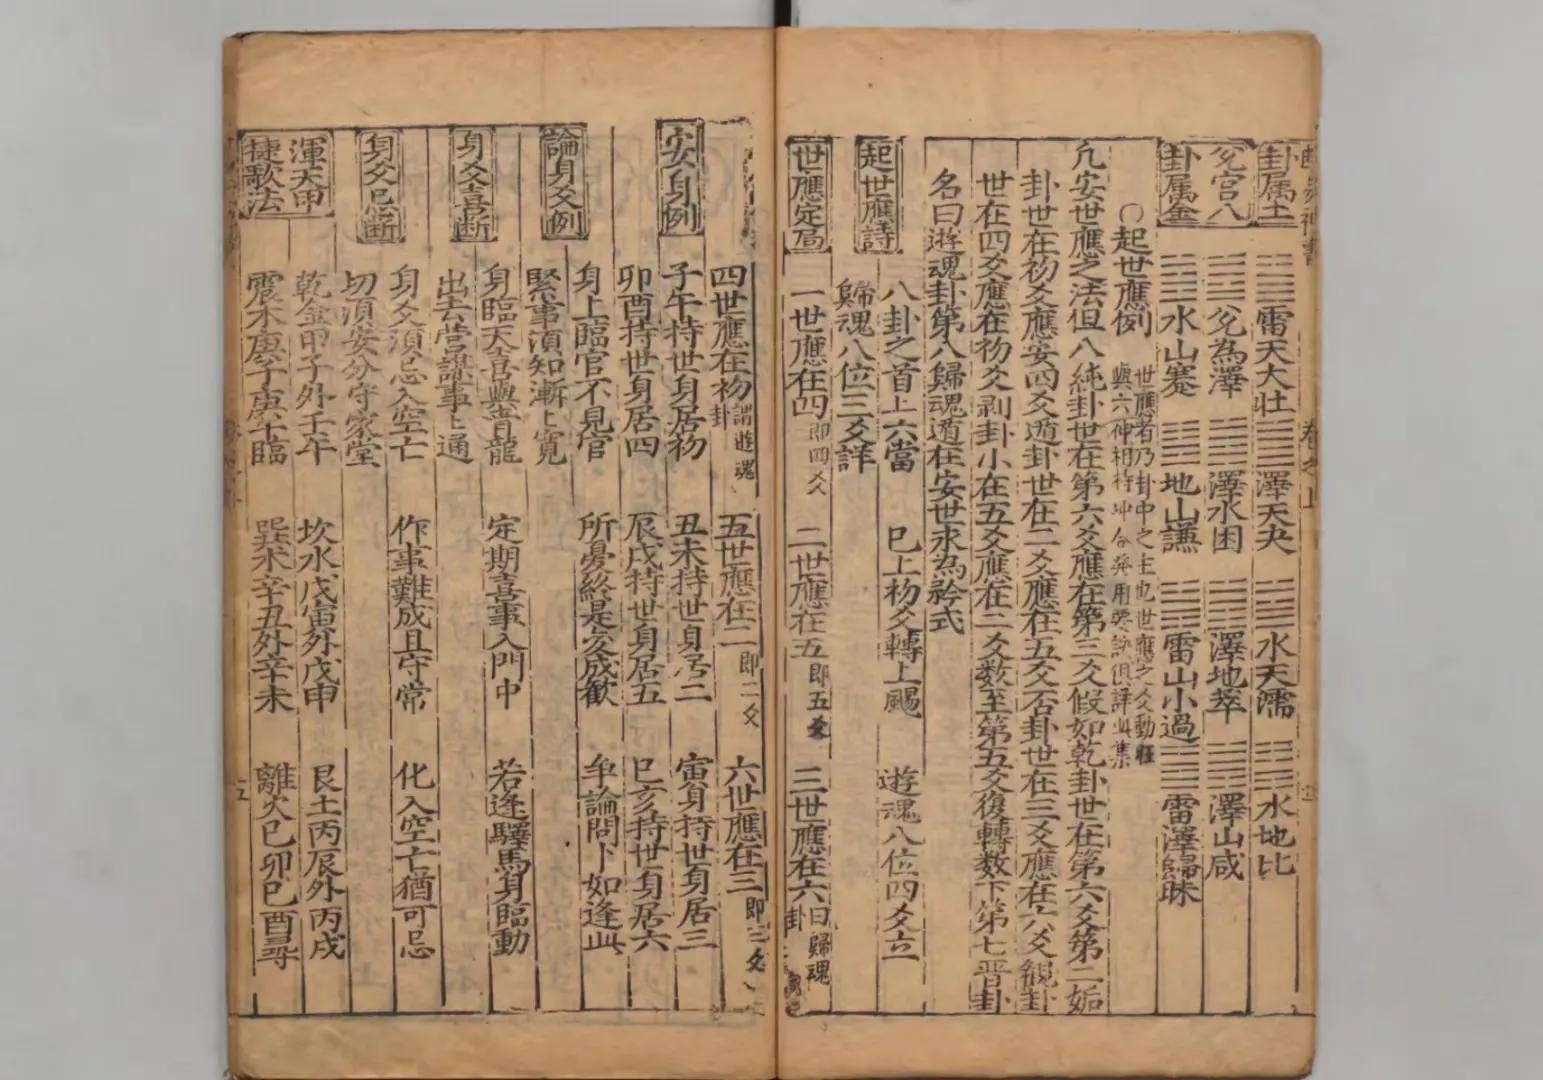 卦属土 雷天大壮 澤天夬 水天需 水地比
兌宮八 兌為澤 澤水困 澤地萃 澤山咸
卦属金 水山蹇 地山謙 雷山小過 雷澤歸昧
○起世應例 世應者乃卦中之主也世應之爻動
凢安世應之法但八純卦世在第六爻應在第三爻假如乾卦世在第六爻第二姤
卦世在初爻應安四爻遁卦世在二爻應在五爻否卦世在三爻應在六爻観卦
世在四爻應在初爻剥卦小在五爻應在二爻数至第五爻復轉数下第七晋卦
名曰遊魂卦第八歸魂遁在安世求為於式
起世應詩 八卦之首上六當 巳上初爻轉上颺 遊魂八位四爻立
歸魂八位三爻詳
世應定局 一世應在四 即四爻 二世應在五 即五爻 三世應在六 曰歸魂卦
四世應在初 謂遊魂卦 五世應在二 即二爻 六世應在三 即三爻
安身例 子午持世身居初 丑未持世身居二 寅身持世身居三
卯酉持世身居四 辰戌持世身居五 巳亥持世身居六
身上臨官不見官 所憂終是変成歡 争論問卜如逢此
論身爻例 緊事須知漸上寛
身臨天喜與青龍 定期喜事入門中 若逢驛馬身臨動
身爻喜断 出去营謀事上通
身爻須忌入空亡 作事難成且守常 化入空亡猶可忌
身爻忌断 切須安分守家堂
渾天甲 乾金甲子外壬午 坎水戊寅外戊申 艮土丙辰外丙戌
捷歌法 震木庚子庚午臨 巽木辛丑外辛未 離火巳卯巳酉尋
五